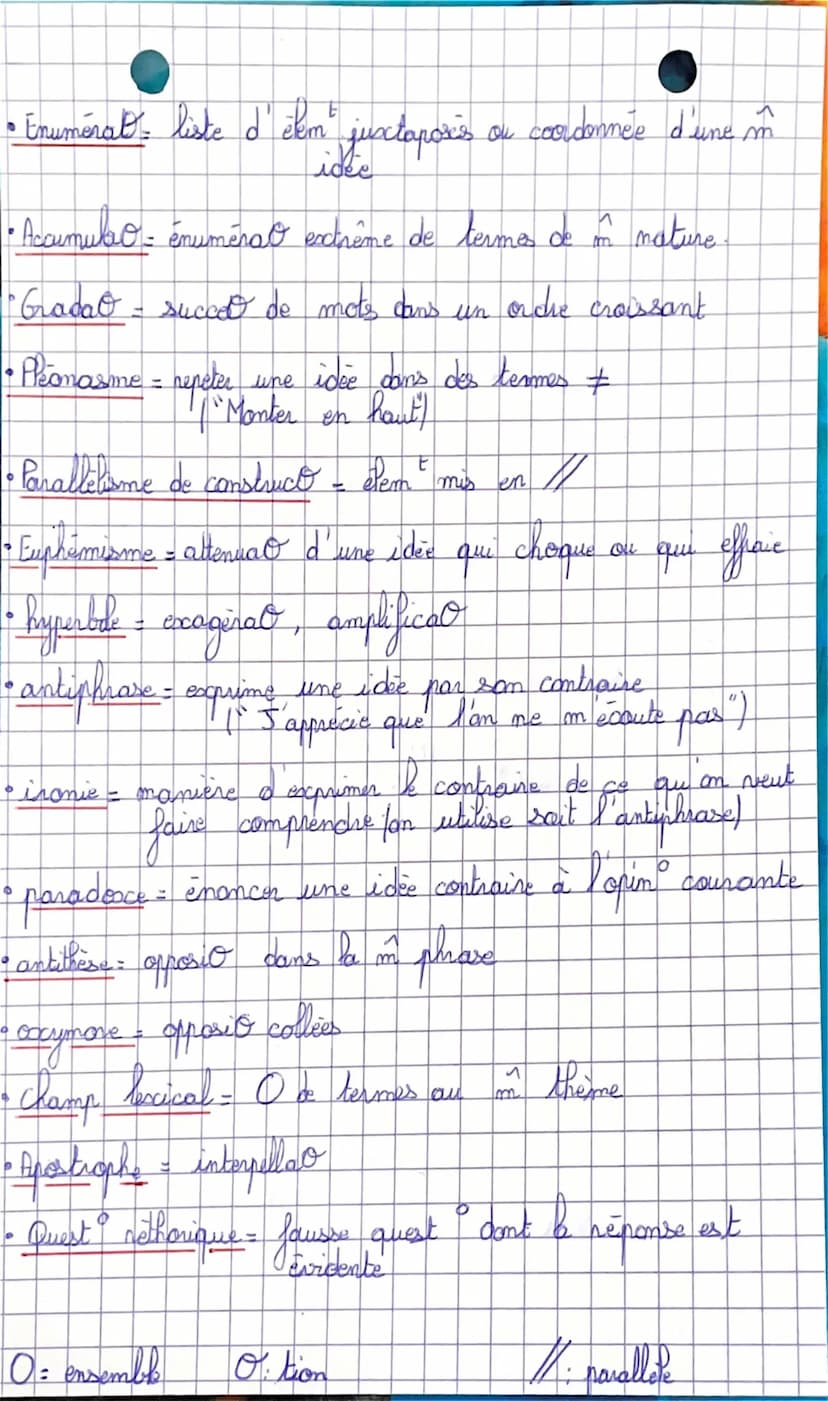 • Enumérat℧= liste d' élém^t juxtaposés ou coordonnée d'une m̂
idée
• Accumula℧= énuméra℧ extrême de termes de m̂ nature.
• Grada℧ = succes℧ de mots dans un ordre croissant
• Pléonasme = repéter une idée dans des termes ≠
("Monter en haut")
• Parallélisme de construc℧ = élém^t mis en //
• Euphémisme = attenua℧ d'une idée qui choque ou qui effraie
• hyperbole = exagéra℧, amplifica℧
• antiphrase = exprime une idée par son contraire
(" J'apprécie que l'on ne m'écoute pas")
• ironie = manière d'exprimer le contraire de ce qu'on veut
faire comprendre (on utilise soit l'antiphrase)
• paradoxe = énoncer une idée contraire à l'opin° courante
• antithèse= opposi℧ dans la m̂ phrase
• oxymore = opposi℧ collées
• Champ lexical = O de termes au m̂ thème
• Apostrophe = interpella℧
• Quest° réthorique = fausse quest° dont la réponse est
évidente
O= ensemble ℧: tion //: parallèle